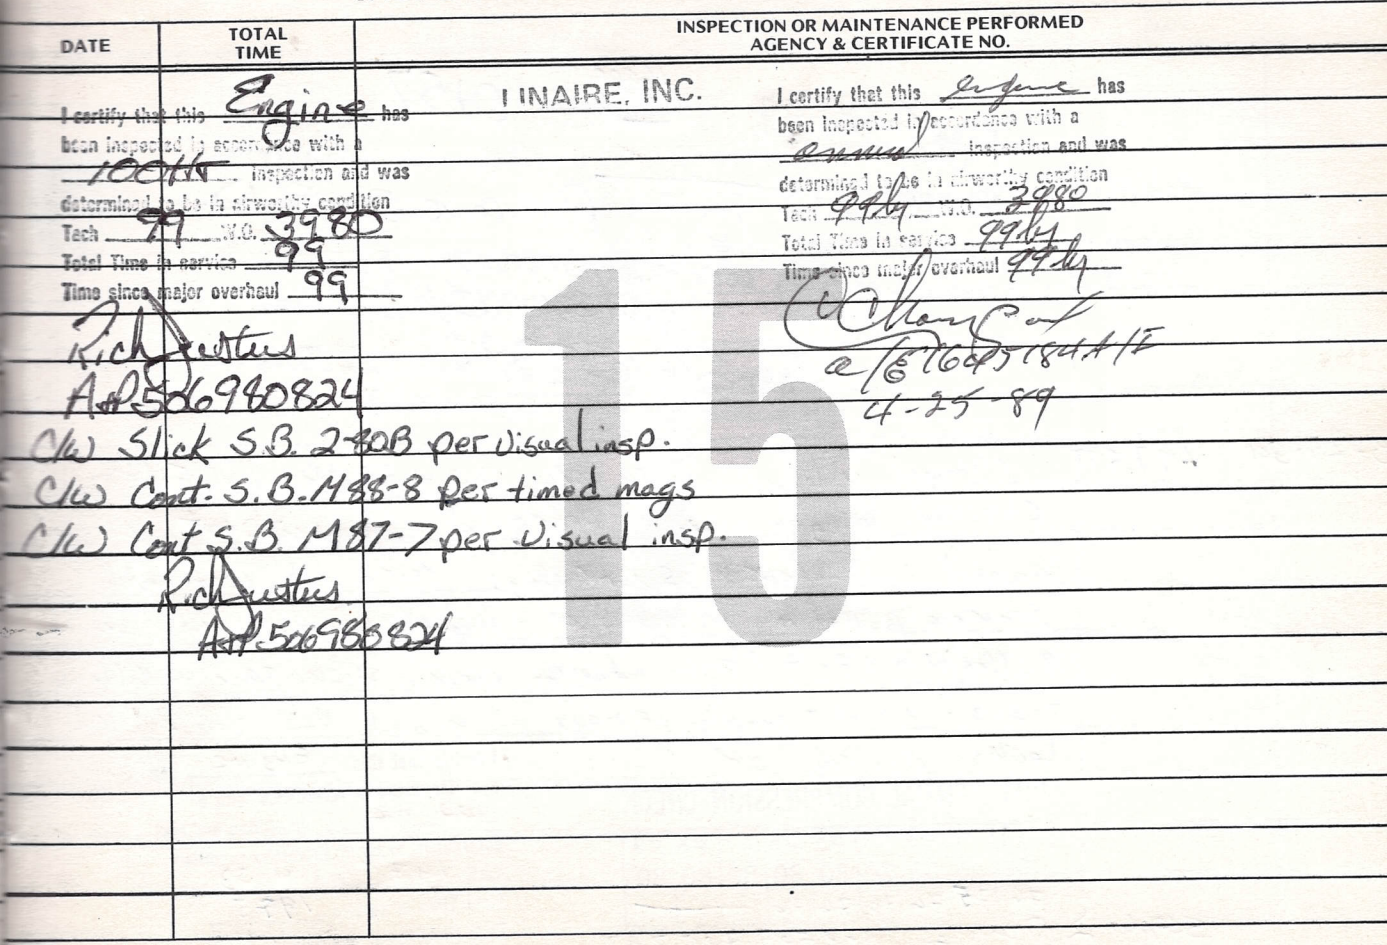 DATE
TOTAL
TIME
INSPECTION OR MAINTENANCE PERFORMED
AGENCY & CERTIFICATE NO.
I certify that this Engine has
been inspected in accordance with a
100HR inspection and was
determined to be in airworthy condition
Tach 99 W.O. 3980
Total Time in service 99
Time since major overhaul 99
Rich Justus
A&P 506980824
C/W Slick S.B. 2-80B per visual insp.
C/W Cont. S.B. M88-8 per timed mags
C/W Cont S.B. M87-7 per visual insp.
Rich Justus
A&P 506980824
UNAIRE, INC.
I certify that this engine has
been inspected in accordance with a
annual inspection and was
determined to be in airworthy condition
Tach 99 W.O. 3980
Total Time in service 99
Time since major overhaul 99
4-25-89
15